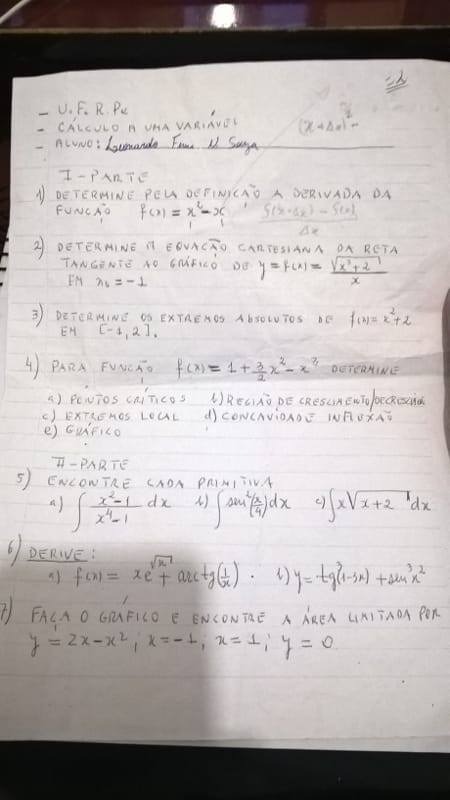 =2
- U.F.R.Pe
- CÁLCULO A UMA VARIÁVEL (x+Δx)² -
- ALUNO: Leonardo
I-PARTE
1) DETERMINE PELA DEFINIÇÃO A DERIVADA DA
FUNÇÃO f(x) = x²-x f(x+Δx) - f(x)
Δx
2) DETERMINE A EQUAÇÃO CARTESIANA DA RETA
TANGENTE AO GRÁFICO DE y=f(x)= √x²+2 / x
EM x₀ = -1
3) DETERMINE OS EXTREMOS ABSOLUTOS DE f(x)=x²+2
EM [-1,2].
4) PARA FUNÇÃO f(x)= 1+3/2 x² - x³ DETERMINE
a) PONTOS CRÍTICOS b) REGIÃO DE CRESCIMENTO/DECRESCIM
c) EXTREMOS LOCAL d) CONCAVIDADE INFLEXÃO
e) GRÁFICO
II-PARTE
5) ENCONTRE CADA PRIMITIVA
a) ∫ x²-1 / x⁴-1 dx b) ∫ sen²(x/4) dx c) ∫x√x+2 dx
6) DERIVE:
a) f(x) = xe^√x + arctg(1/x) . b) y= tg³(1-3x) + sen³x²
7) FAÇA O GRÁFICO E ENCONTRE A ÁREA LIMITADA POR
y = 2x-x² ; x=-1 ; x=1 ; y=0